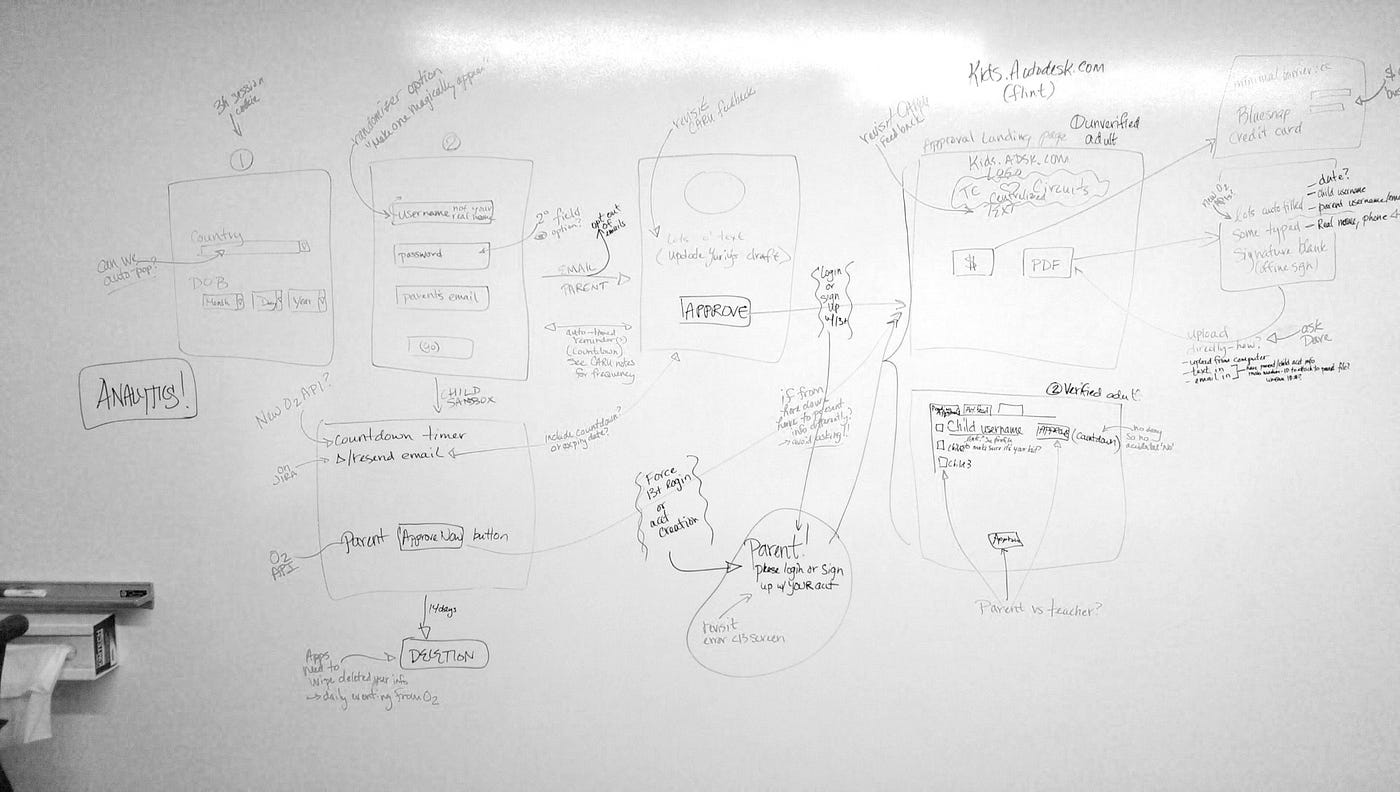 3h session
cookie
①
Country
Can we
auto-pop?
DOB
Month
Day
Year
ANALYTICS!
randomizer option
"Make one magically appear"
②
username not your
real name
password
parent's email
(Go)
2° field
option?
opt out
of
emails
EMAIL
PARENT
auto-timed
reminder(s)
(countdown)
See CARU notes
for frequency
CHILD
SANDBOX
New O2 API?
Countdown timer
resend email
on
JIRA
include countdown?
or expiry date?
Parent Approve Now button
O2
API
14 days
DELETION
Apps
need to
wipe deleted user info
→ daily eventing from O2
revisit
CARU feedback
Lots o' text
(update Yuriy's draft)
APPROVE
Login
or
Sign
up
w/13+
if from
here down
have to present
info differently?
avoid asking?!
Force
13+ login
or
acct
creation
Parent!
please login or sign
up w/ YOUR acct
revisit
error <13 screen
Kids.Autodesk.com
(flint)
revisit CARU
feedback
Approval Landing page
① unverified
adult
Kids.ADSK.com
Logo
TC ♡ Circuits
Centralized
TEXT
$
PDF
minimal barrier: cc
Bluesnap
credit card
new O2
Lots autofilled
Some typed
Signature blank
(offline sign)
— date?
— child username
— parent username/
— Real name, phone
upload
directly - how?
— upload from computer
— text in
— email in
ask
Dave
② Verified adult
Child username
APPROVE
(countdown)
Child3
no deny
so no
accidental "No"
Approve
Parent vs teacher?